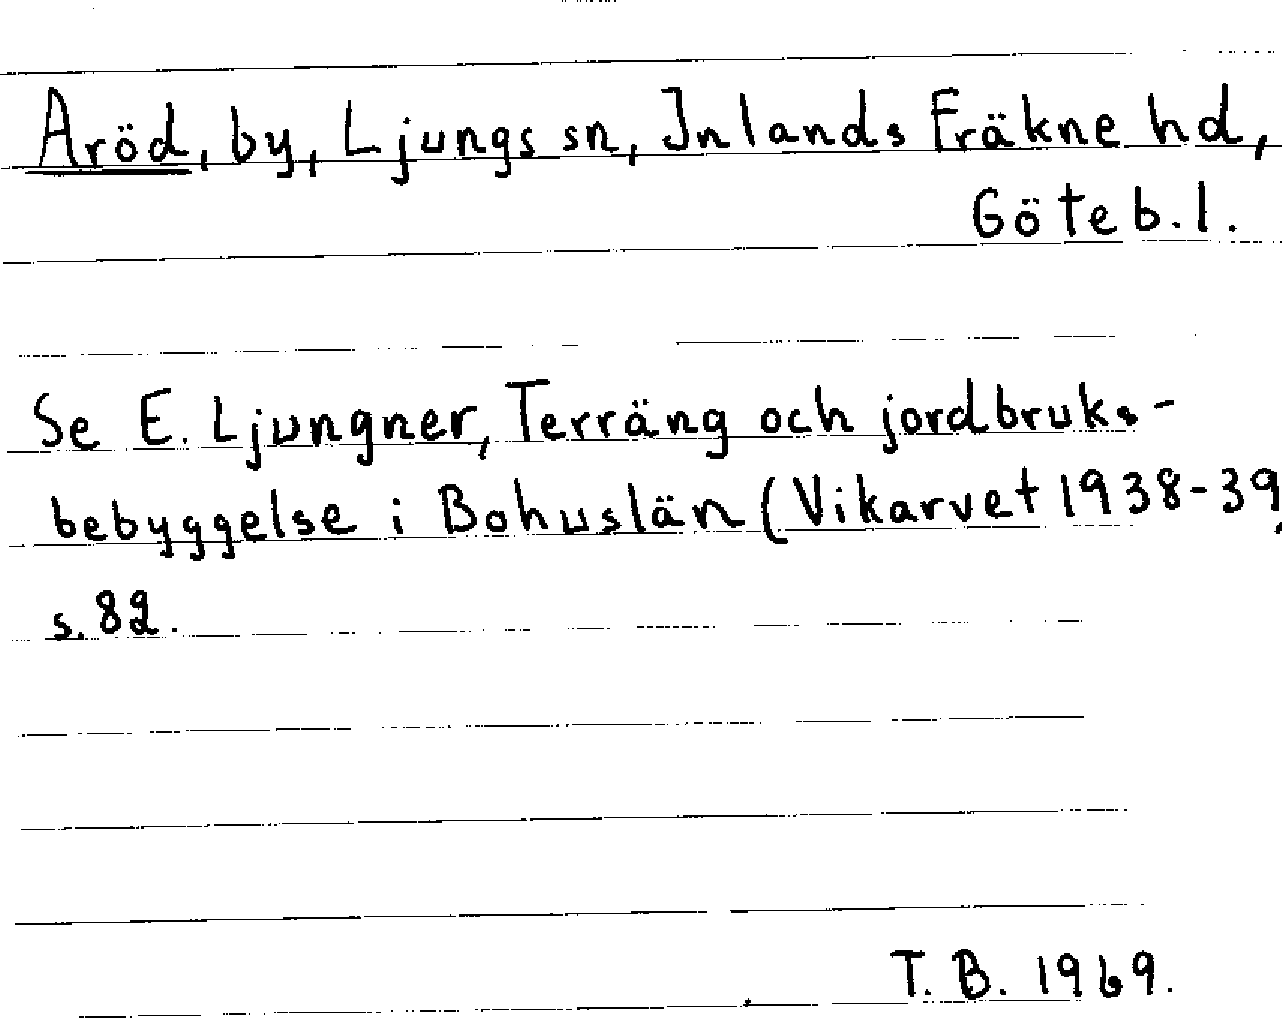 Aröd, by, Ljungs sn, Inlands Fräkne hd,
Göteb. l.
Se E. Ljungner, Terräng och jordbruks-
bebyggelse i Bohuslän (Vikarvet 1938-39,
s. 82.
T. B. 1969.